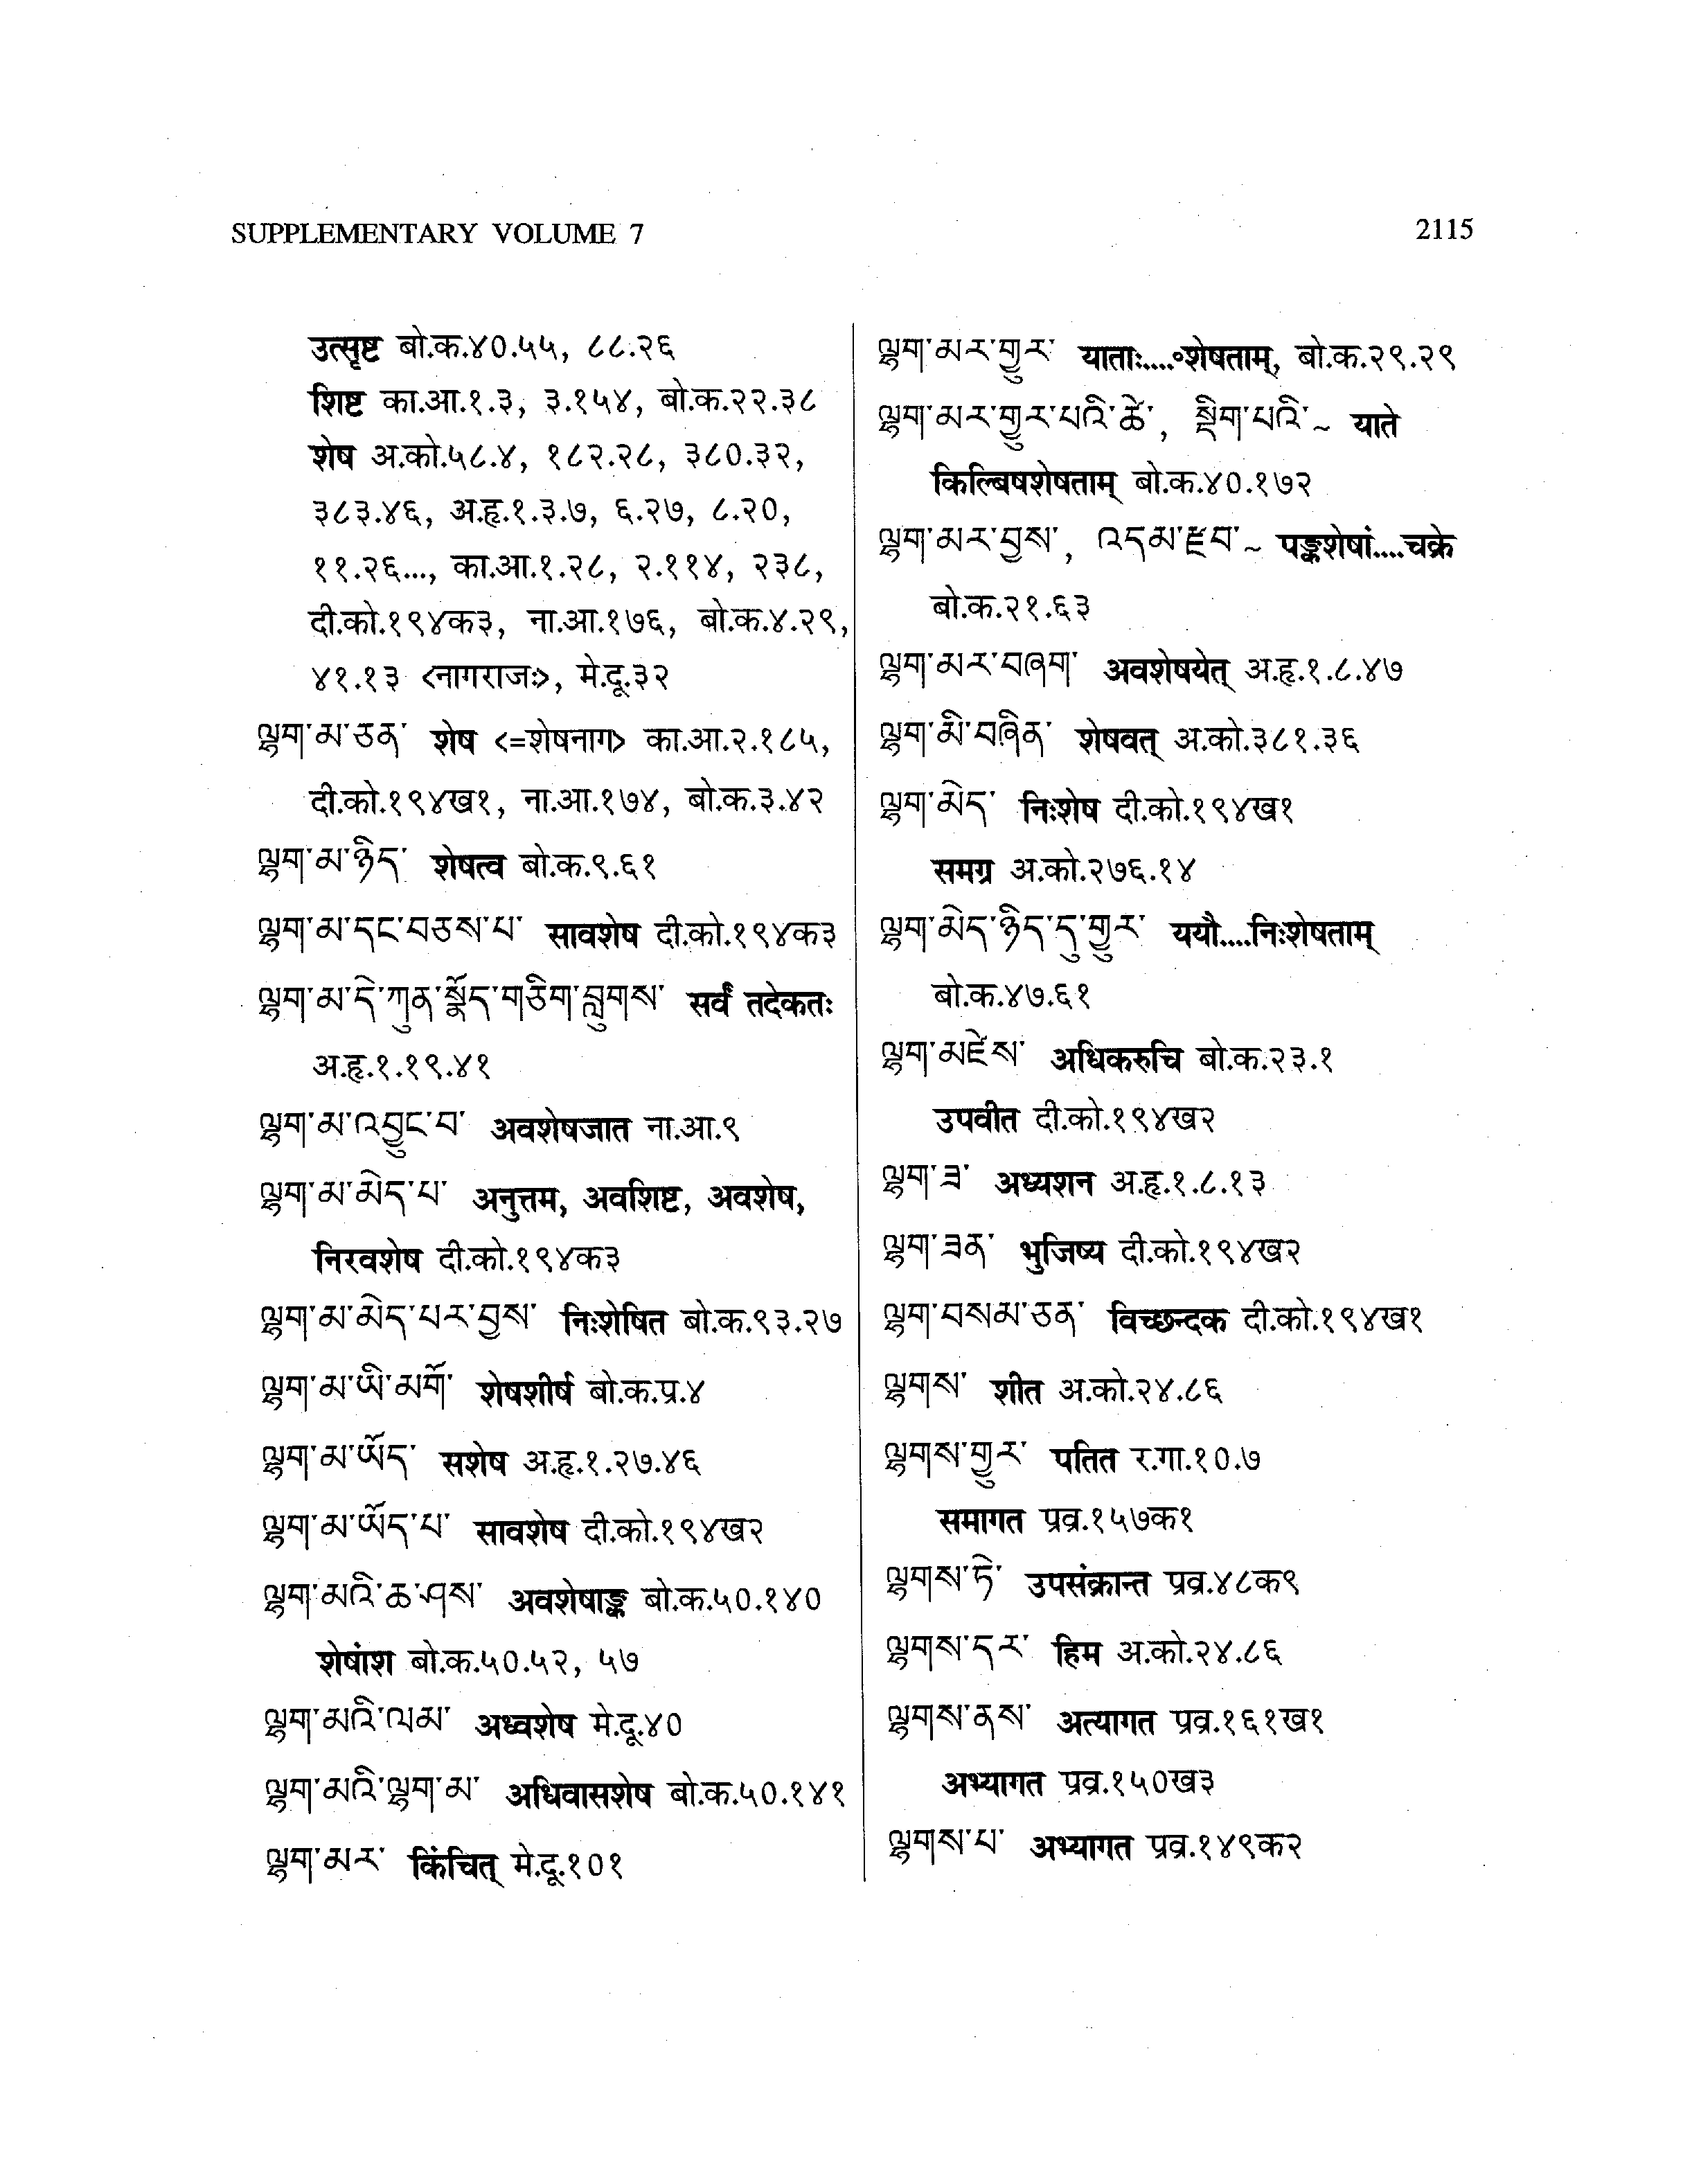 SUPPLEMENTARY VOLUME 7
2115
उत्सृष्ट बो.क.४०.५५, ८८.२६
शिष्ट का.आ.१.३, ३.१५४, बो.क.२२.३८
शेष अ.को.५८.४, १८२.२८, ३८०.३२,
३८३.४६, अ.हृ.१.३.७, ६.२७, ८.२०,
११.२६..., का.आ.१.२८, २.११४, २३८,
दी.को.१९४क३, ना.आ.१७६, बो.क.४.२९,
४१.१३ <नागराजः>, मे.दू.३२
ལྷག་མ་ཅན་ शेष <=शेषनाग> का.आ.२.१८५,
दी.को.१९४ख१, ना.आ.१७४, बो.क.३.४२
ལྷག་མ་ཉིད་ शेषत्व बो.क.९.६१
ལྷག་མ་དང་བཅས་པ་ सावशेष दी.को.१९४क३
ལྷག་མ་དེ་ཀུན་སྣོད་གཅིག་བླུགས་ सर्वं तदेकतः
अ.हृ.१.१९.४१
ལྷག་མ་འབྱུང་བ་ अवशेषजात ना.आ.९
ལྷག་མ་མེད་པ་ अनुत्तम, अवशिष्ट, अवशेष,
निरवशेष दी.को.१९४क३
ལྷག་མ་མེད་པར་བྱས་ निःशेषित बो.क.९३.२७
ལྷག་མ་ཡི་མགོ་ शेषशीर्ष बो.क.प्र.४
ལྷག་མ་ཡོད་ सशेष अ.हृ.१.२७.४६
ལྷག་མ་ཡོད་པ་ सावशेष दी.को.१९४ख२
ལྷག་མའི་ཆ་ཤས་ अवशेषाङ्क बो.क.५०.१४०
शेषांश बो.क.५०.५२, ५७
ལྷག་མའི་ལམ་ अध्वशेष मे.दू.४०
ལྷག་མའི་ལྷག་མ་ अधिवासशेष बो.क.५०.१४१
ལྷག་མར་ किंचित् मे.दू.१०१
ལྷག་མར་གྱུར་ याताः....॰शेषताम्, बो.क.२९.२९
ལྷག་མར་གྱུར་པའི་ཚེ་, སྡིག་པའི་~ याते
किल्बिषशेषताम् बो.क.४०.१७२
ལྷག་མར་བྱས་, འདམ་རྫབ་~ पङ्कशेषां....चक्रे
बो.क.२१.६३
ལྷག་མར་བཞག་ अवशेषयेत् अ.हृ.१.८.४७
ལྷག་མི་བཞིན་ शेषवत् अ.को.३८१.३६
ལྷག་མེད་ निःशेष दी.को.१९४ख१
समग्र अ.को.२७६.१४
ལྷག་མེད་ཉིད་དུ་གྱུར་ ययौ....निःशेषताम्
बो.क.४७.६१
ལྷག་མཛེས་ अधिकरुचि बो.क.२३.१
उपवीत दी.को.१९४ख२
ལྷག་ཟ་ अध्यशन अ.हृ.१.८.१३
ལྷག་ཟན་ भुजिष्य दी.को.१९४ख२
ལྷག་བསམ་ཅན་ विच्छन्दक दी.को.१९४ख१
ལྷགས་ शीत अ.को.२४.८६
ལྷགས་གྱུར་ पतित र.गा.१०.७
समागत प्रव्र.१५७क१
ལྷགས་ཏེ་ उपसंक्रान्त प्रव्र.४८क९
ལྷགས་དར་ हिम अ.को.२४.८६
ལྷགས་ནས་ अत्यागत प्रव्र.१६१ख१
अभ्यागत प्रव्र.१५०ख३
ལྷགས་པ་ अभ्यागत प्रव्र.१४९क२